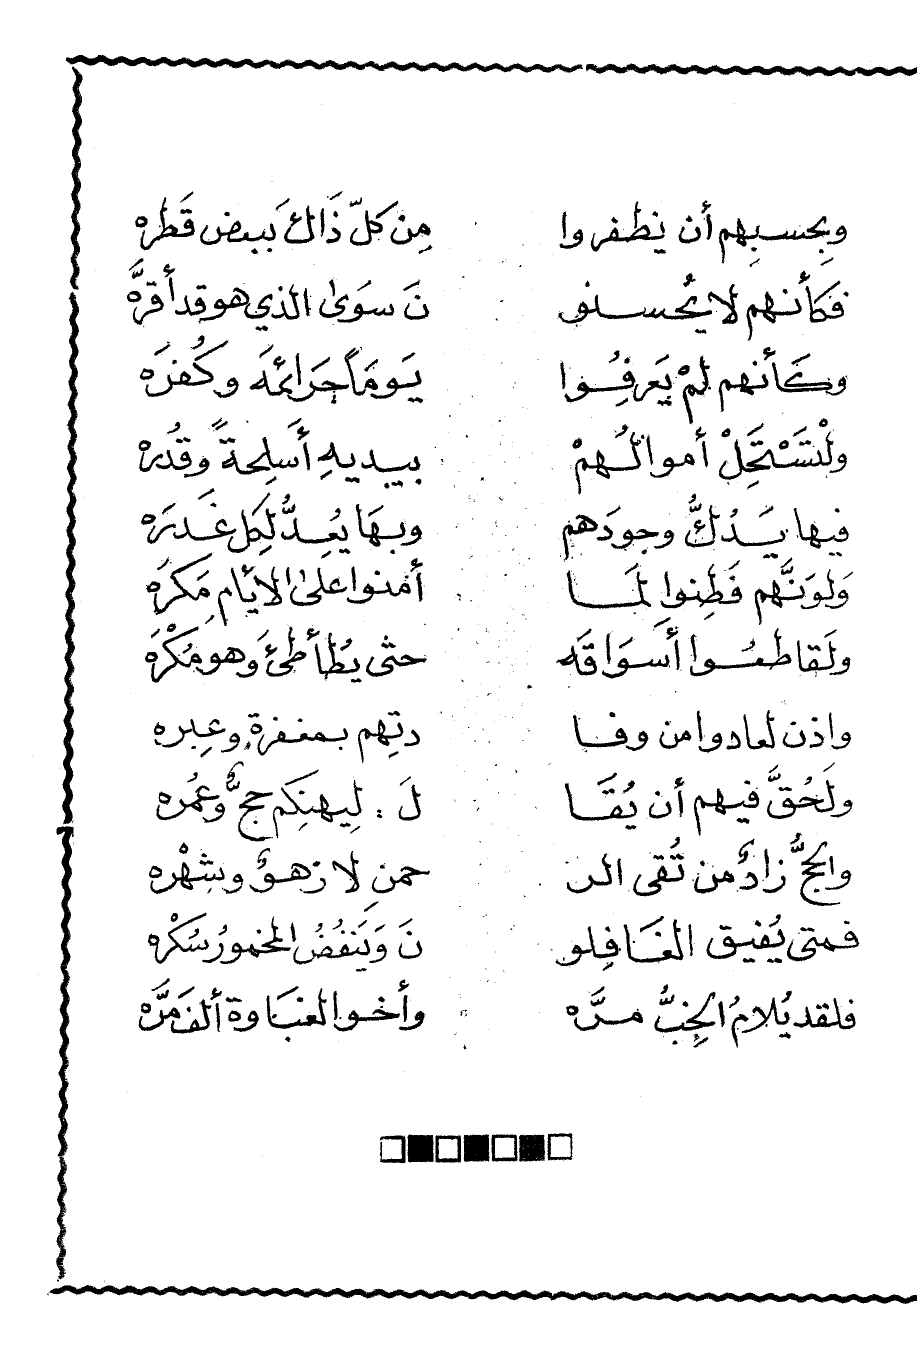 وبحسبهم أن يظفروا من كلّ ذَاك ببعض قَطره
فكأنهم لا يُحسنو نَ سوَىٰ الذي هو قد أَقرَّه
وكأنهم لمْ يَعرفُوا يَومَاً جَرائمَه وكُفرَه
ولْتَسْتَحِلْ أموالُهمْ بيديهِ أَسلِحةً وقُدره
فيها يَدُكُّ وجودَهم وبهَا يُعِدُّ لِكلِ غَدرَه
وَلَوَ نَّهم فَطِنوا لمَا أمنوا علىٰ الأيّامِ مَكرَه
ولَقاطعُوا أسوَاقَه حتى يُطأطئَ وَهو مُكْرَه
واذن لعادوا من وفا دتِهم بمغفرةٍ وعِبره
ولَحُقَّ فيهم أن يُقَا لَ : لِيهنِكم حجٌّ وعُمره
والحجُّ زادٌ من تُقى الر حمنِ لا زهوٌ وشهْره
فمتى يُفيق الغَافِلو نَ وَيَنفُضُ المخمورُ سُكْره
فلقد يُلامُ الخِبُّ مرَّه وأخو الغبَاوة ألفَ مَرَّه